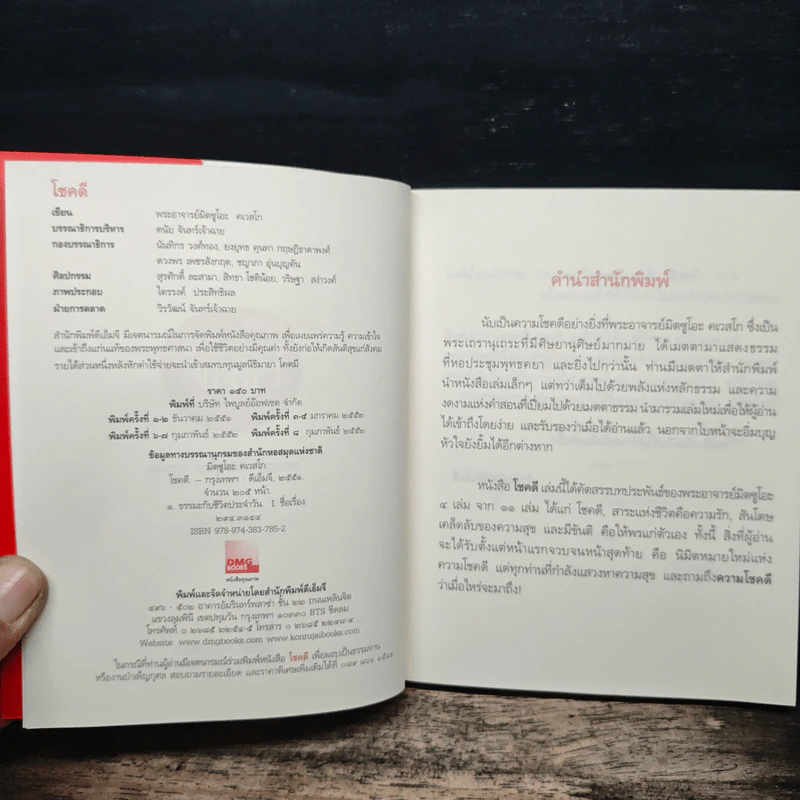 โชคดี
เขียน พระอาจารย์มิตซูโอะ คเวสโก
บรรณาธิการบริหาร ดนัย จันทร์เจ้าฉาย
กองบรรณาธิการ นันทิกร วงศ์ทอง, ยงยุทธ คุนทา กฤษฎิธาดาพงศ์
ดวงพร เพชรสังกฤต, ชญาภา อุ่นบุญตัน
ศิลปกรรม สุรศักดิ์ ละสามา, สิทธา โชติน้อย, วริษฐา สง่าวงศ์
ภาพประกอบ ไตรรงค์ ประสิทธิผล
ฝ่ายการตลาด วิรวัฒน์ จันทร์เจ้าฉาย
สำนักพิมพ์ดีเอ็มจี มีเจตนารมณ์ในการจัดพิมพ์หนังสือคุณภาพ เพื่อเผยแพร่ความรู้ ความเข้าใจ
และเข้าถึงแก่นแท้ของพระพุทธศาสนา เพื่อใช้ชีวิตอย่างมีคุณค่า ทั้งยังก่อให้เกิดสันติสุขแก่สังคม
รายได้ส่วนหนึ่งหลังหักค่าใช้จ่ายจะนำเข้าสมทบทุนมูลนิธิมายา โคตมี
ราคา ๑๔๐ บาท
พิมพ์ที่ บริษัท ไพบูลย์อ๊อฟเซต จำกัด
พิมพ์ครั้งที่ ๑-๒ ธันวาคม ๒๕๕๑ พิมพ์ครั้งที่ ๓-๕ มกราคม ๒๕๕๒
พิมพ์ครั้งที่ ๖-๗ กุมภาพันธ์ ๒๕๕๒ พิมพ์ครั้งที่ ๘ กุมภาพันธ์ ๒๕๕๒
ข้อมูลทางบรรณานุกรมของสำนักหอสมุดแห่งชาติ
มิตซูโอะ คเวสโก.
โชคดี. – กรุงเทพฯ : ดีเอ็มจี, ๒๕๕๑.
จำนวน ๒๐๕ หน้า.
๑. ธรรมะกับชีวิตประจำวัน. I. ชื่อเรื่อง.
๒๙๔.๓๑๔๔
ISBN 978-974-383-785-2
DMG
BOOKS
หนังสือคุณภาพ
พิมพ์และจัดจำหน่ายโดยสำนักพิมพ์ดีเอ็มจี
๔๙๖ - ๕๐๒ อาคารอัมรินทร์พลาซ่า ชั้น ๒๒ ถนนเพลินจิต
แขวงลุมพินี เขตปทุมวัน กรุงเทพฯ ๑๐๓๓๐ BTS ชิดลม
โทรศัพท์ ๐ ๒๖๘๕ ๒๒๕๔-๕ โทรสาร ๐ ๒๖๘๕ ๒๒๙๘-๙
Website www.dmgbooks.com www.konrujaibooks.com
ในกรณีที่ท่านผู้อ่านมีเจตนารมณ์ร่วมพิมพ์หนังสือ โชคดี เพื่อมอบเป็นธรรมทาน
หรืองานบำเพ็ญกุศล สอบถามรายละเอียด และราคาพิเศษเพิ่มเติมได้ที่
คำนำสำนักพิมพ์
นับเป็นความโชคดีอย่างยิ่งที่พระอาจารย์มิตซูโอะ คเวสโก ซึ่งเป็น
พระเถรานุเถระที่มีศิษยานุศิษย์มากมาย ได้เมตตามาแสดงธรรม
ที่หอประชุมพุทธคยา และยิ่งไปกว่านั้น ท่านมีเมตตาให้สำนักพิมพ์
นำหนังสือเล่มเล็กๆ แต่ทว่าเต็มไปด้วยพลังแห่งหลักธรรม และความ
งดงามแห่งคำสอนที่เปี่ยมไปด้วยเมตตาธรรม นำมารวมเล่มใหม่เพื่อให้ผู้อ่าน
ได้เข้าถึงโดยง่าย และรับรองว่าเมื่อได้อ่านแล้ว นอกจากใบหน้าจะอิ่มบุญ
หัวใจยังยิ้มได้อีกต่างหาก
หนังสือ โชคดี เล่มนี้ได้คัดสรรบทประพันธ์ของพระอาจารย์มิตซูโอะ
๔ เล่ม จาก ๑๑ เล่ม ได้แก่ โชคดี, สาระแห่งชีวิตคือความรัก, สันโดษ
เคล็ดลับของความสุข และมีขันติ คือให้พรแก่ตัวเอง ทั้งนี้ สิ่งที่ผู้อ่าน
จะได้รับตั้งแต่หน้าแรกจวบจนหน้าสุดท้าย คือ นิมิตหมายใหม่แห่ง
ความโชคดี แด่ทุกท่านที่กำลังแสวงหาความสุข และถามถึงความโชคดี
ว่าเมื่อไหร่จะมาถึง!